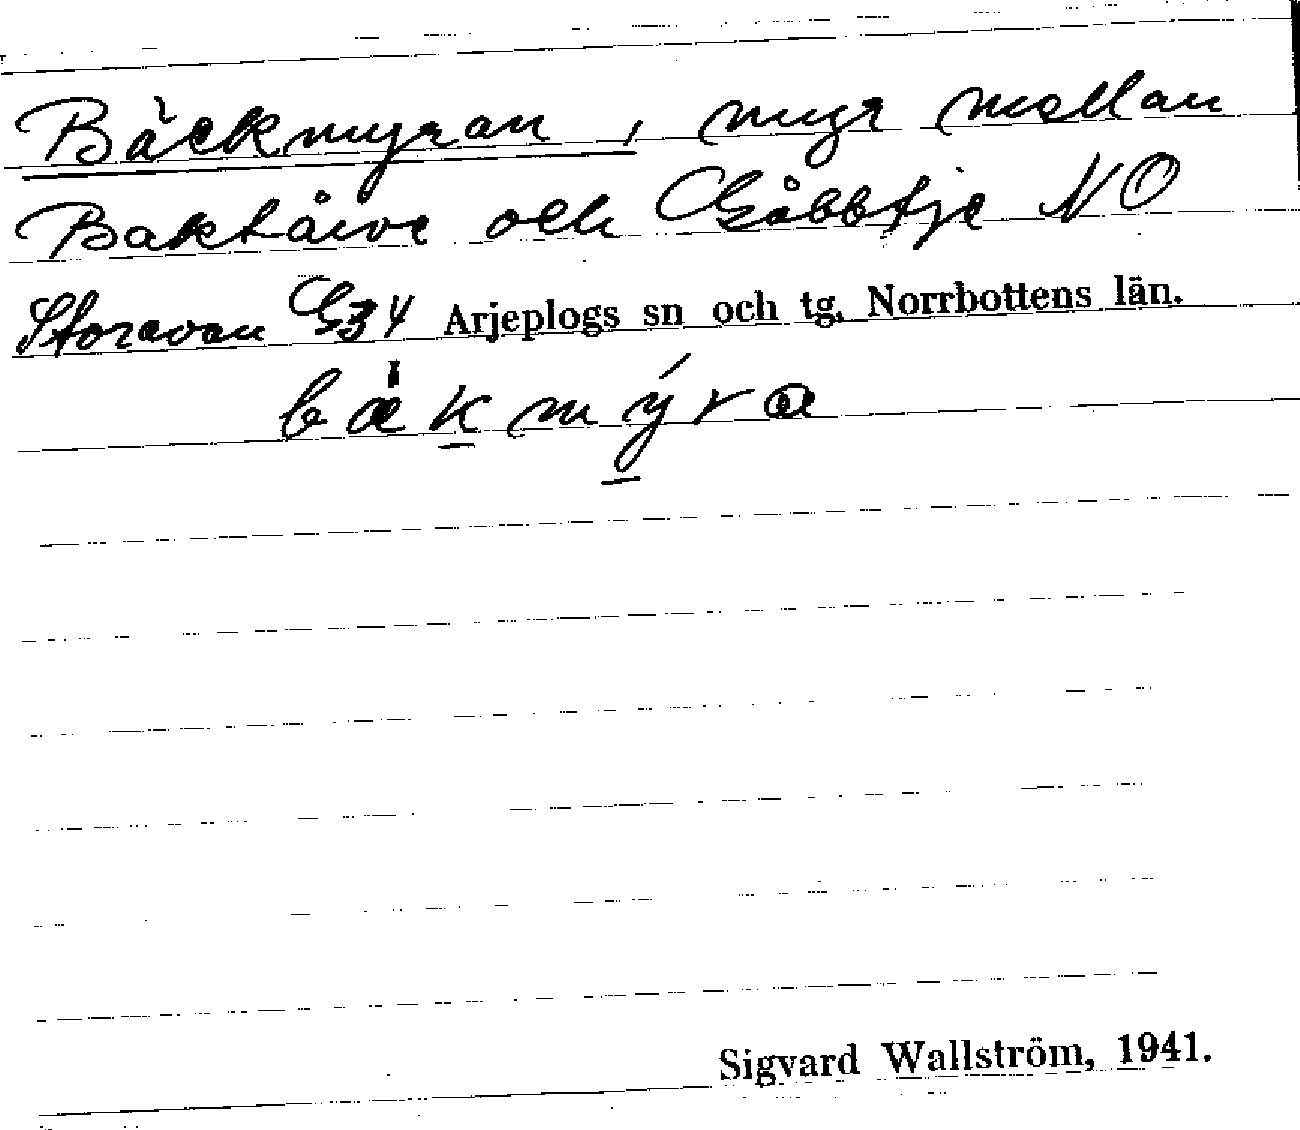 Bäckmyran, myr mellan
Baktåive och Gåbbtje NO
Storavan G34 Arjeplogs sn och tg, Norrbottens län.
bækmýra
Sigvard Wallström, 1941.